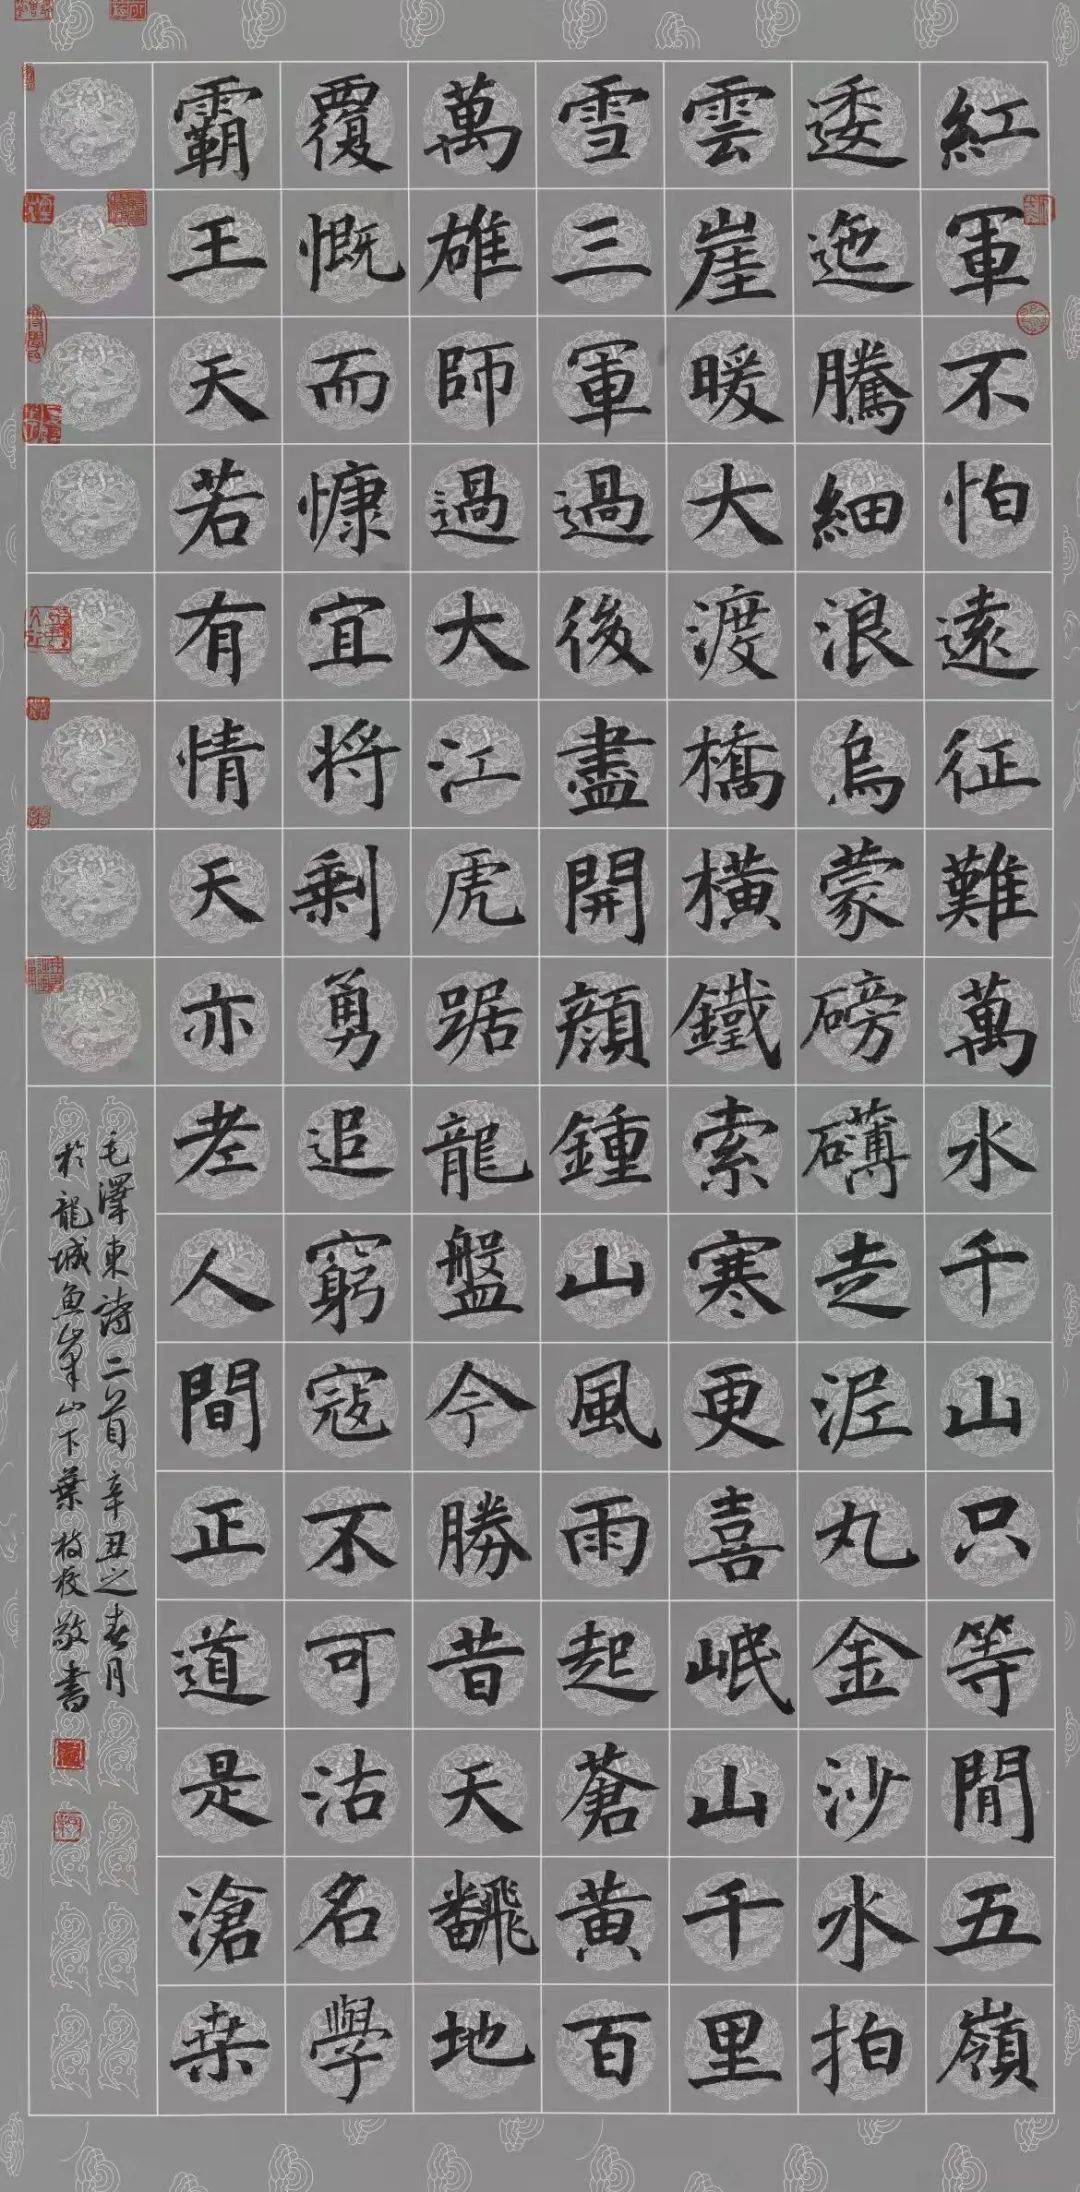 紅軍不怕遠征難萬水千山只等閒五嶺
逶迤騰細浪烏蒙磅礴走泥丸金沙水拍
雲崖暖大渡橋橫鐵索寒更喜岷山千里
雪三軍過後盡開顏鍾山風雨起蒼黃百
萬雄師過大江虎踞龍盤今勝昔天飜地
覆慨而慷宜將剩勇追窮寇不可沽名學
霸王天若有情天亦老人間正道是滄桑
毛澤東詩二首 辛丑之春月
於龍城魚峯山下葉枝敬書